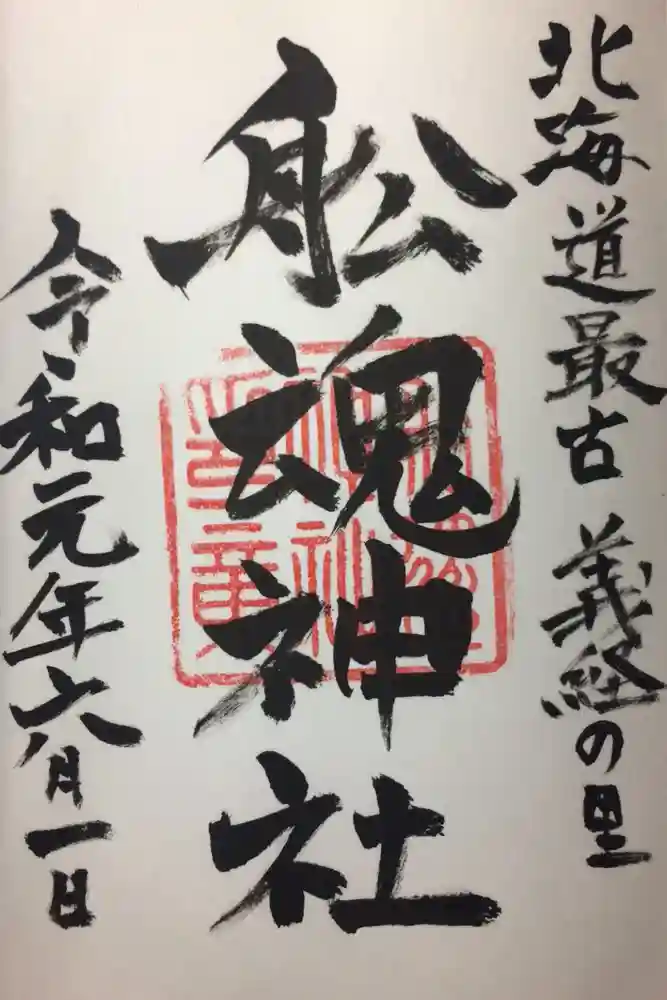 北海道最古 義経の里
舩魂神社
令和元年六月一日